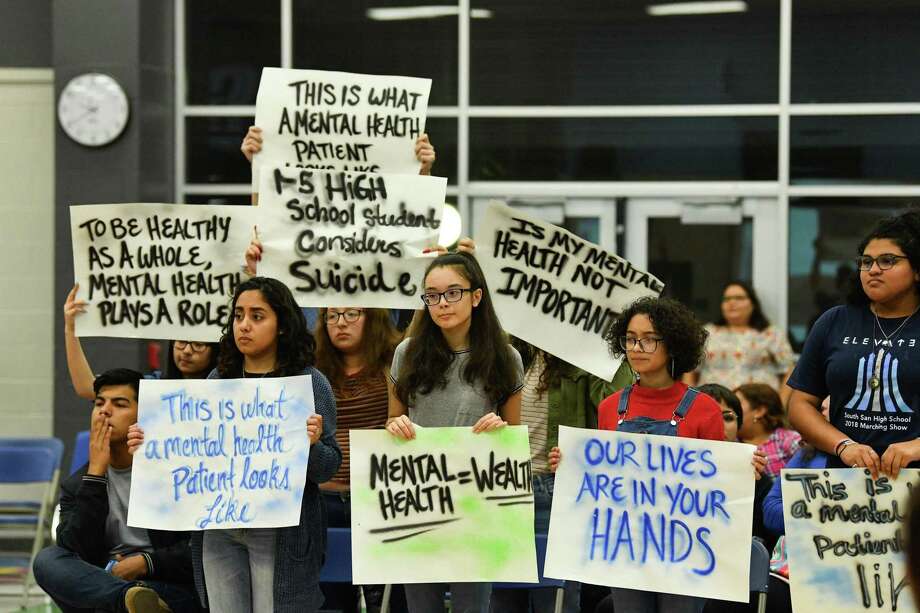 THIS IS WHAT
A MENTAL HEALTH
PATIENT
LOOKS LIKE
1-5 HiGH
School Student
Considers
Suicide
TO BE HEALTHY
AS A WHOLE,
MENTAL HEALTH
PLAYS A ROLE
IS MY MENTAL
HEALTH NOT
IMPORTANT
This is what
a mental health
patient looks
like
MENTAL = WEALTH
HEALTH
OUR LIVES
ARE IN YOUR
HANDS
ELEVATE
South San High School
2018 Marching Show
This is
a mental
Patient
li